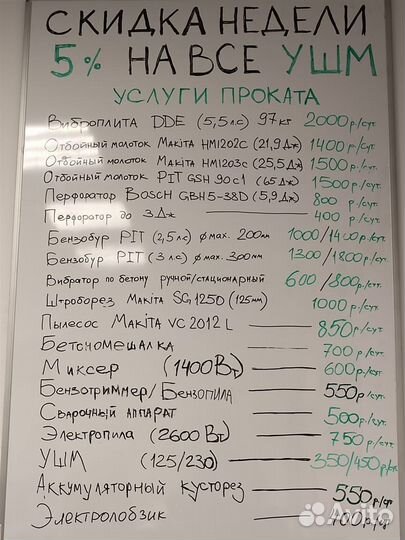 СКИДКА НЕДЕЛИ
5% НА ВСЕ УШМ
УСЛУГИ ПРОКАТА
Виброплита DDE (5,5 л.с) 97кг 2000 р/сут.
Отбойный молоток Makita HM1202C (21,9 Дж) 1400 р/сут.
Отбойный молоток Makita HM1203c (25,5 Дж) 1500 р/сут.
Отбойный молоток PIT GSH 90c1 (65 Дж) 1500 р/сут.
Перфоратор BOSCH GBH 5-38D (5,9 Дж) 800 р/сут.
Перфоратор до 3 Дж 400 р/сут.
Бензобур PIT (2,5 л.с) ø max. 200мм 1000/1400 р/сут.
Бензобур PIT (3 л.с) ø max. 300мм 1300/1800 р/сут.
Вибратор по бетону ручной/стационарный 600/800 р/сут.
Штроборез Makita SG 1250 (125мм) 1000 р/сут.
Пылесос Makita VC 2012 L 850 р/сут.
Бетономешалка 700 р/сут.
Миксер (1400 Вт) 600 р/сут
Бензотриммер/Бензопила 550 р/сут.
Сварочный аппарат 500 р/сут.
Электропила (2600 Вт) 750 р/сут.
УШМ (125/230) 350/450 р/сут.
Аккумуляторный кусторез 550 р/сут
Электролобзик 400 р/сут
Avito